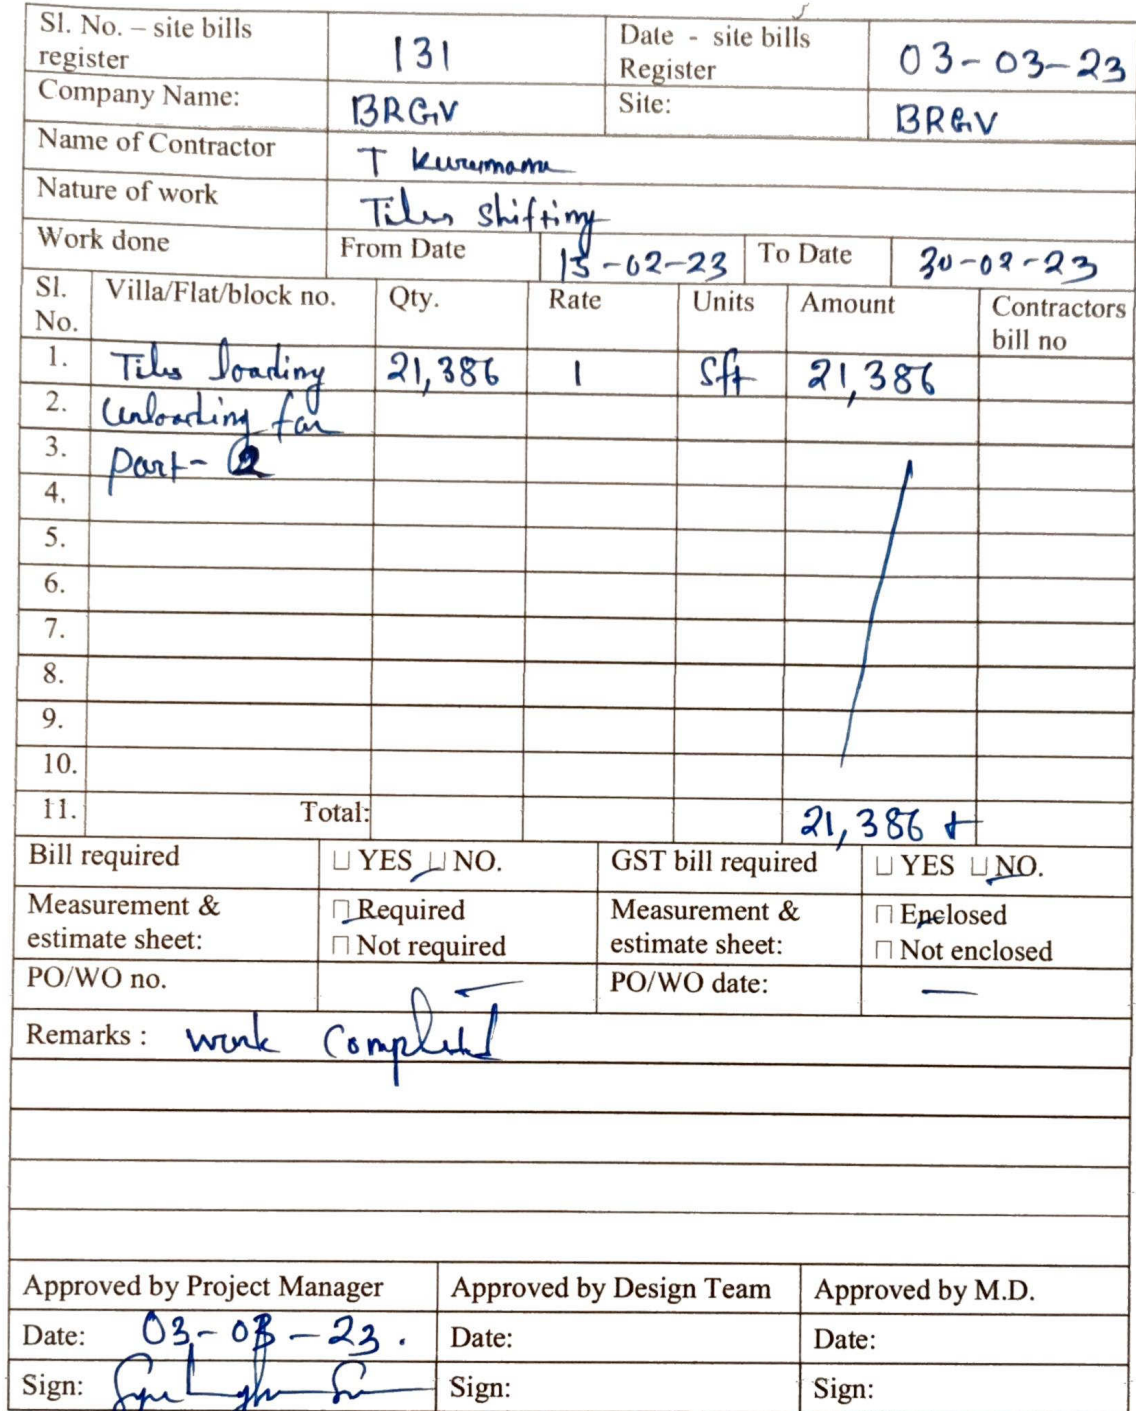 Sl. No. – site bills register 131 Date - site bills Register 03-03-23
Company Name: BRGV Site: BRGV
Name of Contractor T Kurumanna
Nature of work Tiles shifting
Work done From Date 15-02-23 To Date 30-02-23
Sl. No. Villa/Flat/block no. Qty. Rate Units Amount Contractors bill no
1. Tiles loading 21,386 1 Sft 21,386
2. unloading for
3. part- 2
4.
5.
6.
7.
8.
9.
10.
11. Total: 21,386
Bill required ☐ YES ☐ NO. GST bill required ☐ YES ☐ NO.
Measurement & estimate sheet: ☐ Required ☐ Not required Measurement & estimate sheet: ☐ Enclosed ☐ Not enclosed
PO/WO no. — PO/WO date: —
Remarks : work Completed
Approved by Project Manager Approved by Design Team Approved by M.D.
Date: 03-03-23. Date: Date:
Sign: Sign: Sign: